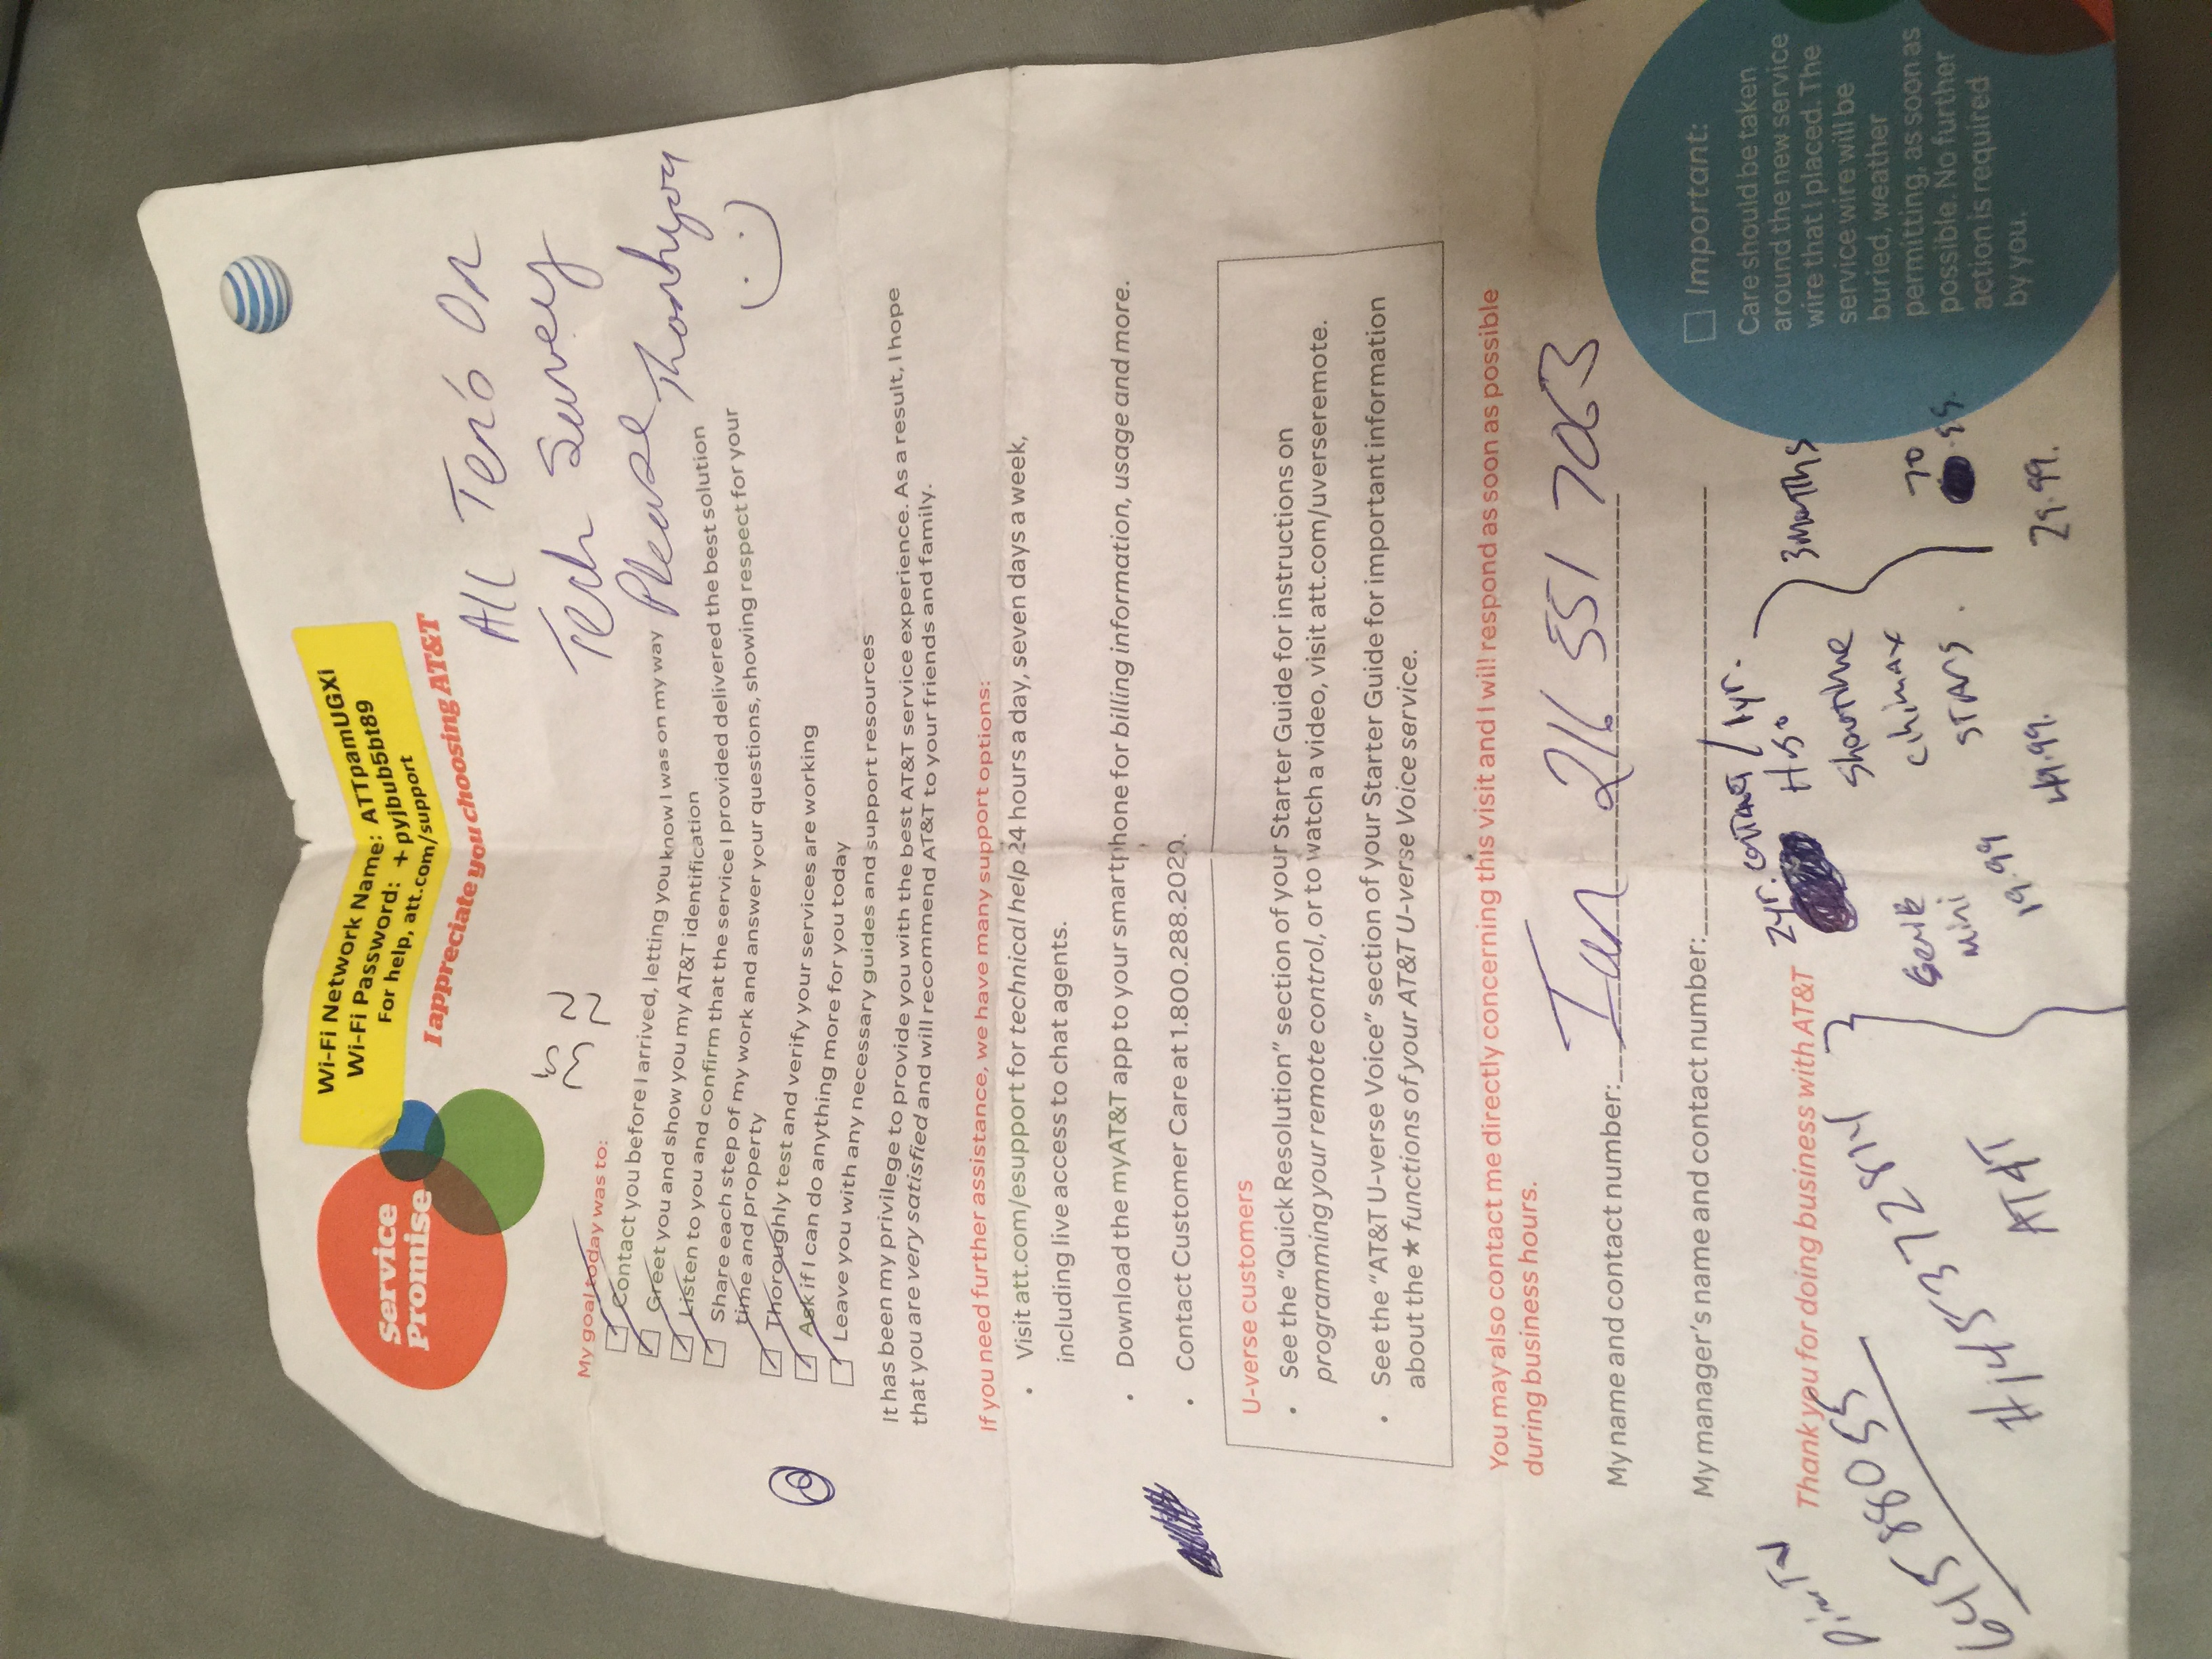 Wi-Fi Network Name: ATTpamUGXi
Wi-Fi Password: +pyjbub5bt89
For help, att.com/support
Service
Promise
I appreciate you choosing AT&T
All Ten's On
Tech Survey
Please Thankyou
35
22
My goal today was to:
Contact you before I arrived, letting you know I was on my way
Greet you and show you my AT&T identification
Listen to you and confirm that the service I provided delivered the best solution
Share each step of my work and answer your questions, showing respect for your
time and property
Thoroughly test and verify your services are working
Ask if I can do anything more for you today
Leave you with any necessary guides and support resources
It has been my privilege to provide you with the best AT&T service experience. As a result, I hope
that you are very satisfied and will recommend AT&T to your friends and family.
If you need further assistance, we have many support options:
• Visit att.com/esupport for technical help 24 hours a day, seven days a week,
including live access to chat agents.
• Download the myAT&T app to your smartphone for billing information, usage and more.
• Contact Customer Care at 1.800.288.2020.
U-verse customers
• See the “Quick Resolution” section of your Starter Guide for instructions on
programming your remote control, or to watch a video, visit att.com/uverseremote.
• See the “AT&T U-verse Voice” section of your Starter Guide for important information
about the * functions of your AT&T U-verse Voice service.
You may also contact me directly concerning this visit and I will respond as soon as possible
during business hours.
My name and contact number: Ian 216 551 7063
My manager's name and contact number:
Thank you for doing business with AT&T
DirecTV
64588055
#145372814
AT&T
2yr. contract / 1yr.
HBO
Showtime
Cinimax
STARS.
3 months
Genie
Mini
19.99
49.99.
70
.99.
29.99.
Important:
Care should be taken
around the new service
wire that I placed. The
service wire will be
buried, weather
permitting, as soon as
possible. No further
action is required
by you.